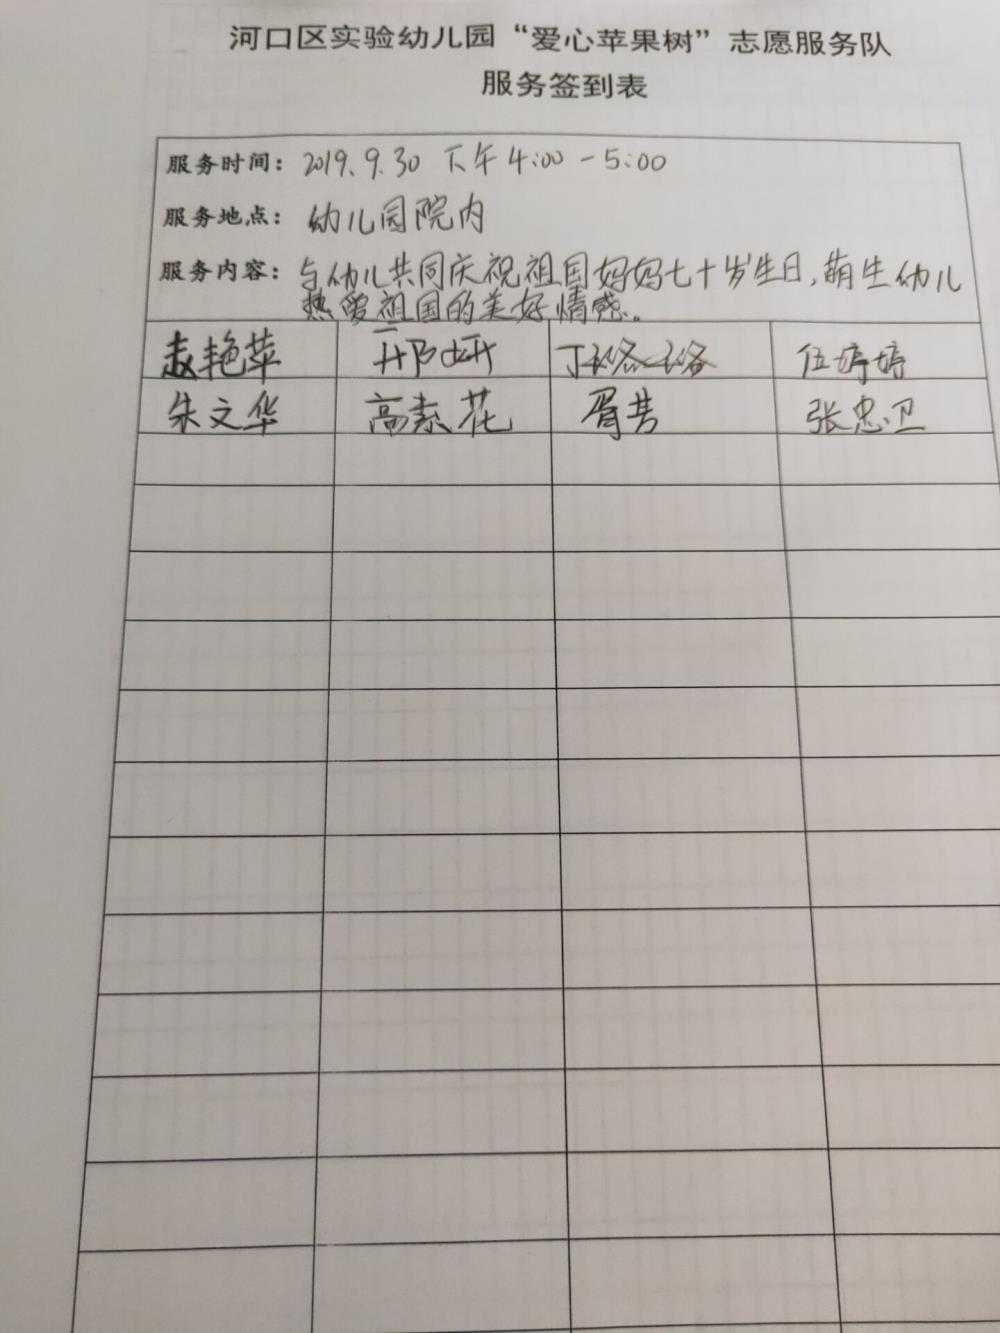 河口区实验幼儿园“爱心苹果树”志愿服务队
服务签到表
服务时间: 2019.9.30 下午4:00-5:00
服务地点: 幼儿园院内
服务内容: 与幼儿共同庆祝祖国妈妈七十岁生日,萌生幼儿
热爱祖国的美好情感。
赵艳苹 邢妍 丁璐璐 伍婷婷
朱文华 高素花 胥芸 张忠卫